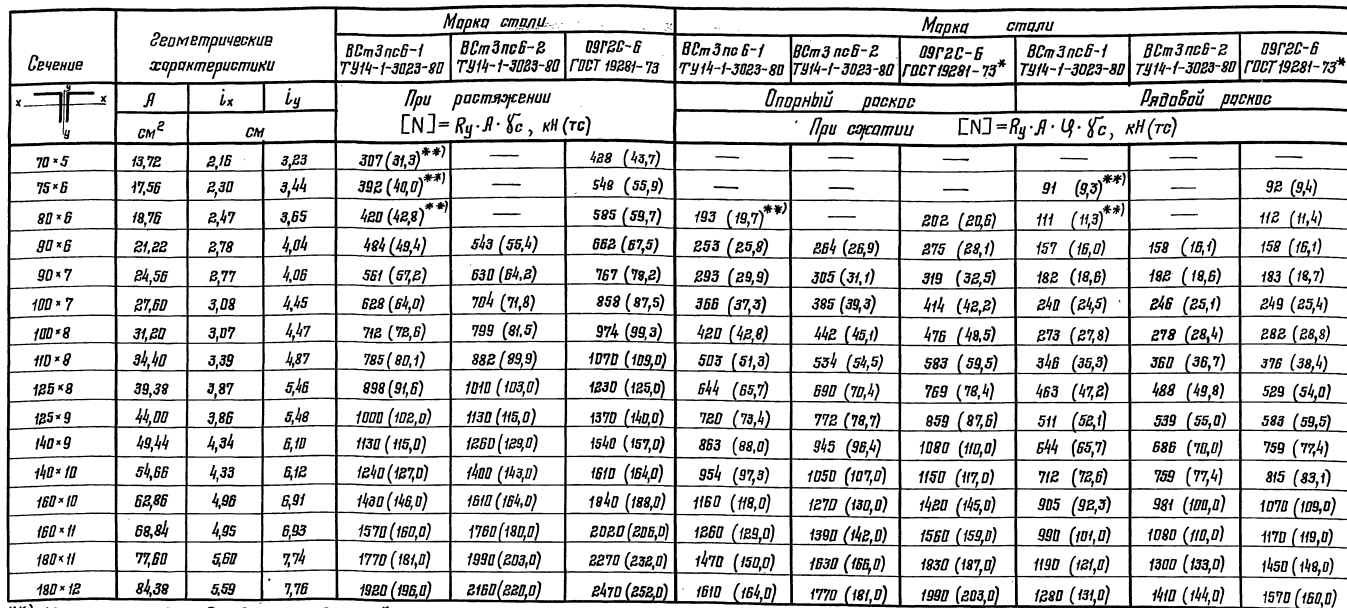 Сечение Геометрические характеристики Марка стали Марка стали
ВСт3пс6-1 ТУ14-1-3023-80 ВСт3пс6-2 ТУ14-1-3023-80 09Г2С-6 ГОСТ 19281-73 ВСт3пс6-1 ТУ14-1-3023-80 ВСт3пс6-2 ТУ14-1-3023-80 09Г2С-6 ГОСТ 19281-73* ВСт3пс6-1 ТУ14-1-3023-80 ВСт3пс6-2 ТУ14-1-3023-80 09Г2С-6 ГОСТ 19281-73*
x y x y A ix iy При растяжении Опорный раскос Рядовой раскос
см² см [N]=Ry·A·γc, кН(тс) При сжатии [N]=Ry·A·φ·γc, кН(тс)
70×5 13,72 2,16 3,23 307 (31,3)**) — 428 (43,7) — — — — — —
75×6 17,56 2,30 3,44 392 (40,0)**) — 548 (55,9) — — — 91 (9,3)**) — 92 (9,4)
80×6 18,76 2,47 3,65 420 (42,8)**) — 585 (59,7) 193 (19,7)**) — 202 (20,6) 111 (11,3)**) — 112 (11,4)
90×6 21,22 2,78 4,04 484 (49,4) 543 (55,4) 662 (67,5) 253 (25,8) 264 (26,9) 275 (28,1) 157 (16,0) 158 (16,1) 158 (16,1)
90×7 24,56 2,77 4,06 561 (57,2) 630 (64,2) 767 (78,2) 293 (29,9) 305 (31,1) 319 (32,5) 182 (18,6) 182 (18,6) 183 (18,7)
100×7 27,60 3,08 4,45 628 (64,0) 704 (71,8) 858 (87,5) 366 (37,3) 385 (39,3) 414 (42,2) 240 (24,5) 246 (25,1) 249 (25,4)
100×8 31,20 3,07 4,47 712 (72,6) 799 (81,5) 974 (99,3) 420 (42,8) 442 (45,1) 476 (48,5) 273 (27,8) 278 (28,4) 282 (28,8)
110×8 34,40 3,39 4,87 785 (80,1) 882 (89,9) 1070 (109,0) 503 (51,3) 534 (54,5) 583 (59,5) 346 (35,3) 360 (36,7) 376 (38,4)
125×8 39,38 3,87 5,46 898 (91,6) 1010 (103,0) 1230 (125,0) 644 (65,7) 690 (70,4) 769 (78,4) 463 (47,2) 488 (49,8) 529 (54,0)
125×9 44,00 3,86 5,48 1000 (102,0) 1130 (115,0) 1370 (140,0) 720 (73,4) 772 (78,7) 859 (87,6) 511 (52,1) 539 (55,0) 583 (59,5)
140×9 49,44 4,34 6,10 1130 (115,0) 1260 (129,0) 1540 (157,0) 863 (88,0) 945 (96,4) 1080 (110,0) 644 (65,7) 686 (70,0) 759 (77,4)
140×10 54,66 4,33 6,12 1240 (127,0) 1400 (143,0) 1610 (164,0) 954 (97,3) 1050 (107,0) 1150 (117,0) 712 (72,6) 759 (77,4) 815 (83,1)
160×10 62,86 4,96 6,91 1430 (146,0) 1610 (164,0) 1840 (188,0) 1160 (118,0) 1270 (130,0) 1420 (145,0) 905 (92,3) 981 (100,0) 1070 (109,0)
160×11 68,84 4,95 6,93 1570 (160,0) 1760 (180,0) 2020 (206,0) 1260 (129,0) 1390 (142,0) 1560 (159,0) 990 (101,0) 1080 (110,0) 1170 (119,0)
180×11 77,60 5,60 7,74 1770 (181,0) 1990 (203,0) 2270 (232,0) 1470 (150,0) 1630 (166,0) 1830 (187,0) 1190 (121,0) 1300 (133,0) 1450 (148,0)
180×12 84,38 5,59 7,76 1920 (196,0) 2160 (220,0) 2470 (252,0) 1610 (164,0) 1770 (181,0) 1990 (203,0) 1280 (131,0) 1410 (144,0) 1570 (160,0)